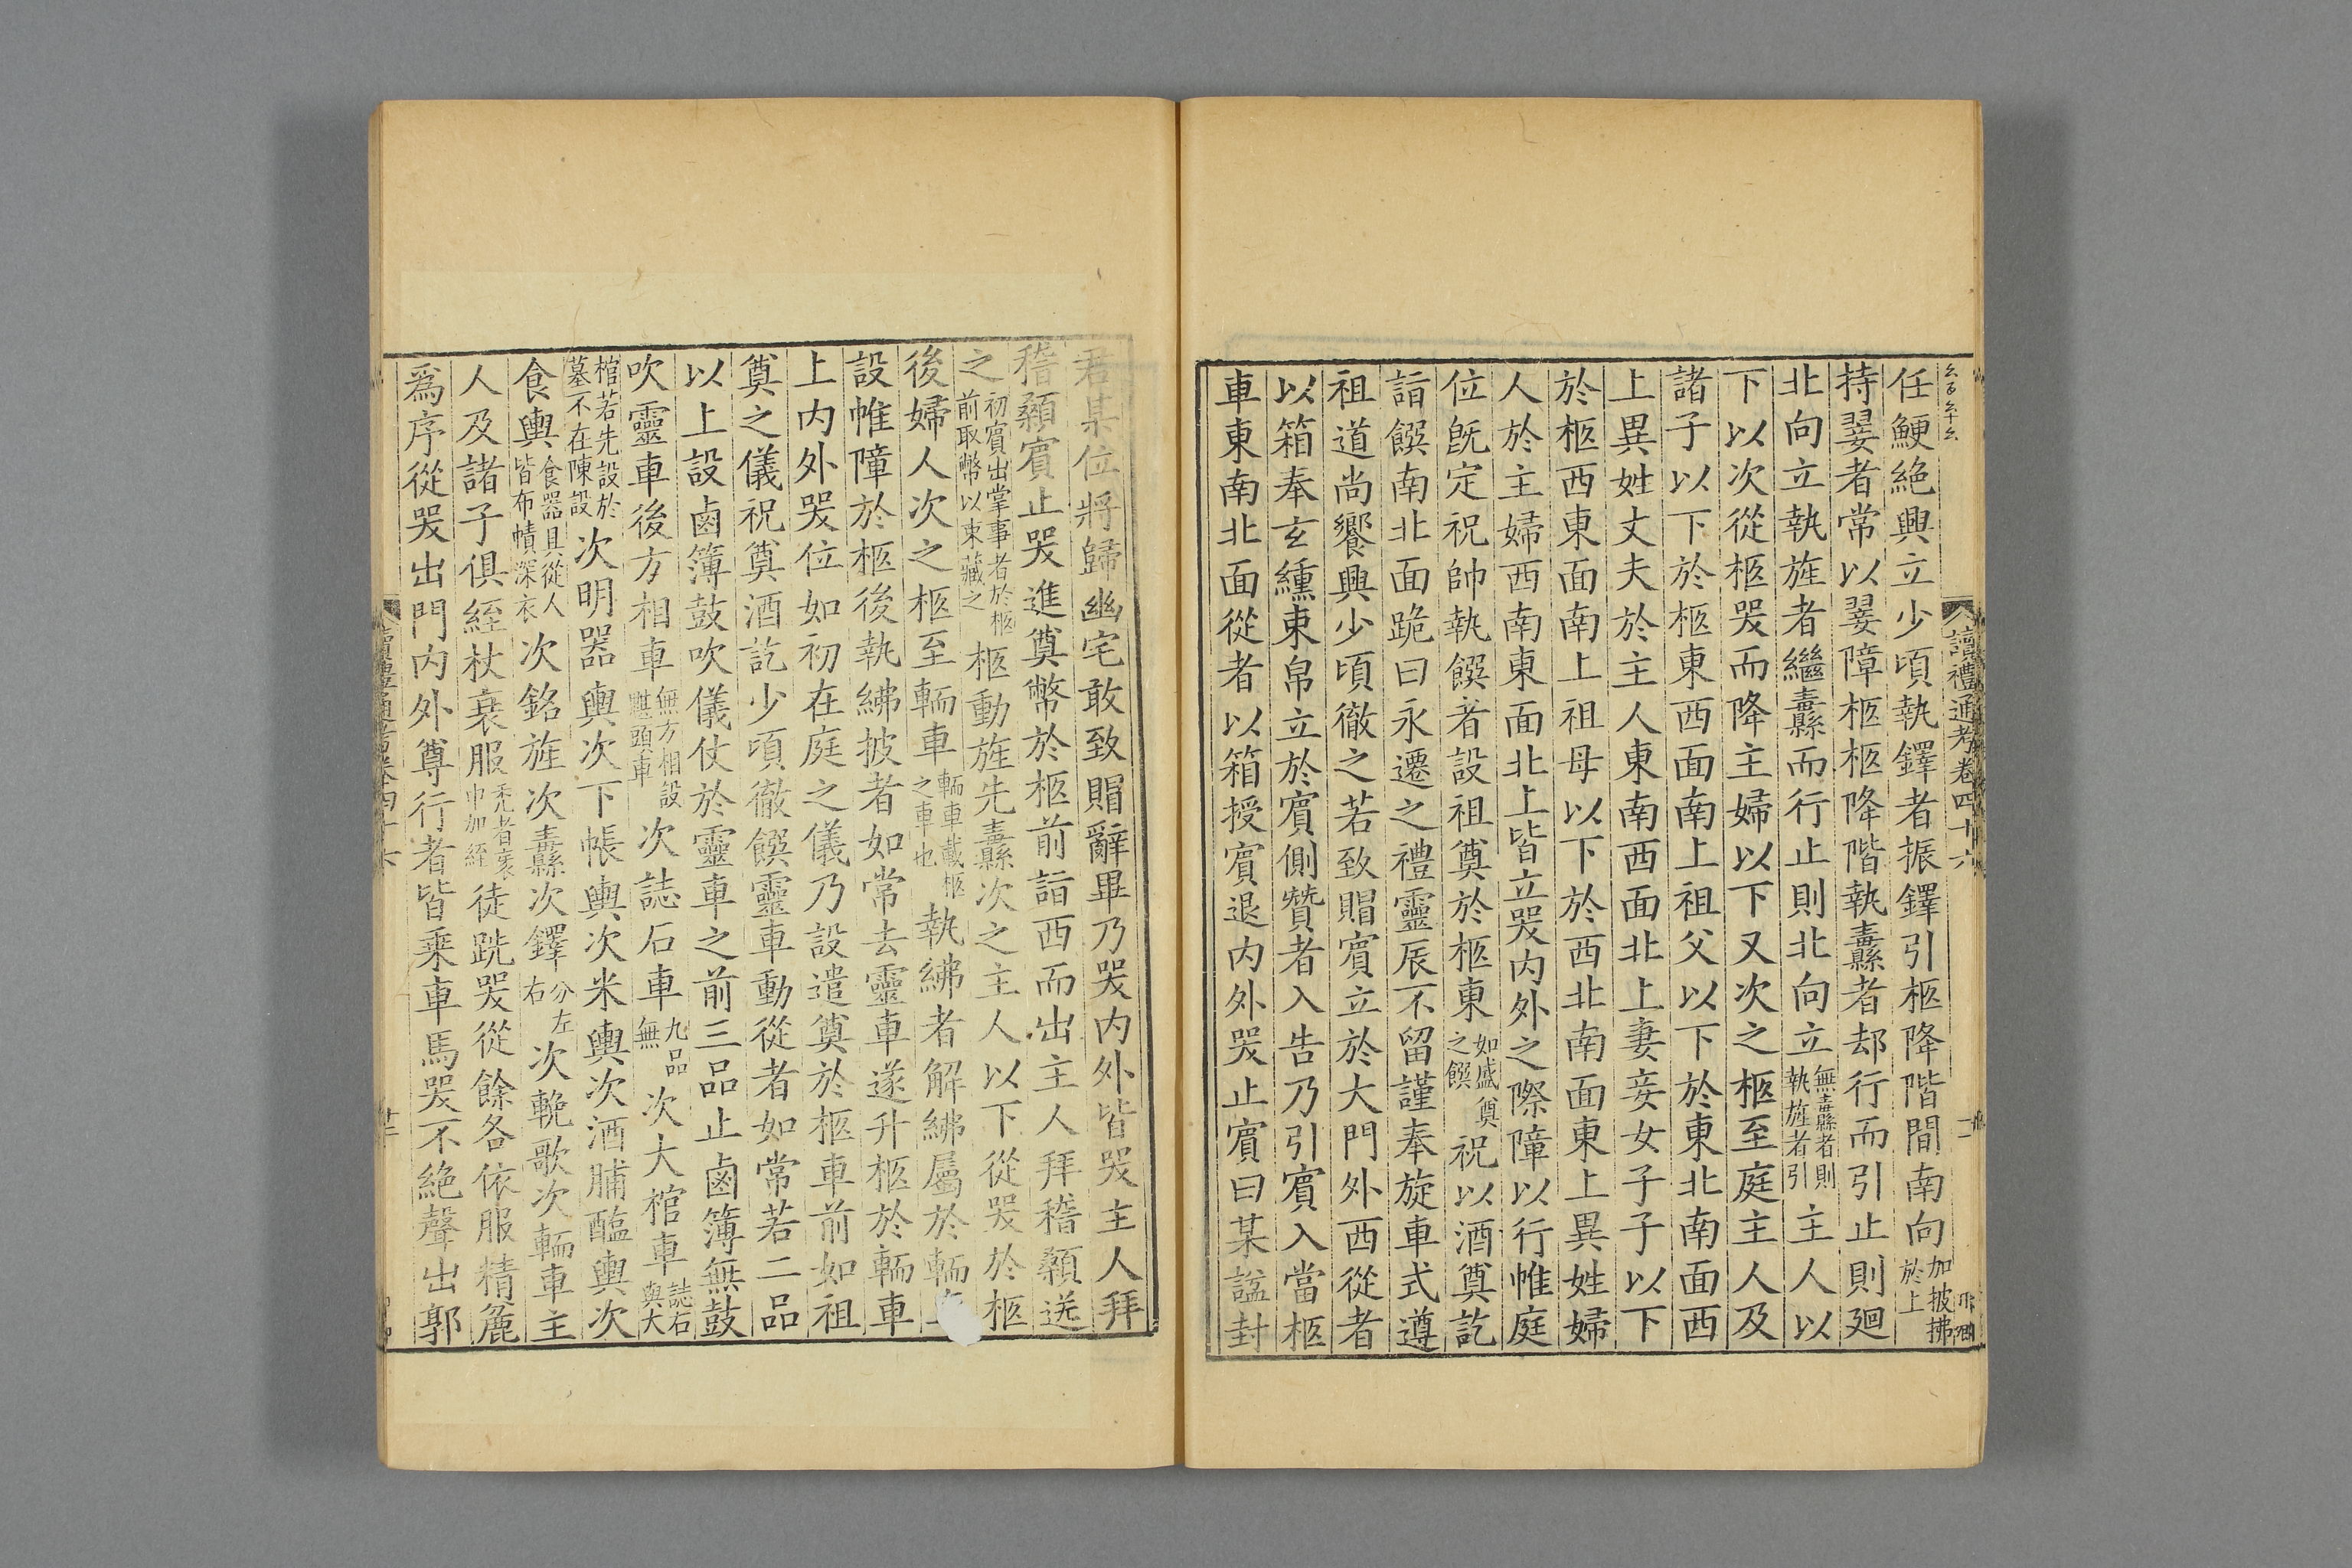 讀禮通考卷四十六
任鯁絶興立少頃執鐸者振鐸引柩降階間南向加披拂於上
持翣者常以翣障柩柩降階執纛者却行而引止則廻
北向立執旌者繼纛而行止則北向立無纛者則執旌者引主人以
下以次從柩哭而降主婦以下又次之柩至庭主人及
諸子以下於柩東西面南上祖父以下於東北南面西
上異姓丈夫於主人東南西面北上妻妾女子子以下
於柩西東面南上祖母以下於西北南面東上異姓婦
人於主婦西南東面北上皆立哭内外之際障以行帷庭
位旣定祝帥執饌者設祖奠於柩東如盛奠之饌祝以酒奠訖
詣饌南北面跪曰永遷之禮靈辰不留謹奉旋車式遵
祖道尚饗興少頃徹之若致賵賓立於大門外西從者
以箱奉玄纁束帛立於賓側贊者入告乃引賓入當柩
車東南北面從者以箱授賓退内外哭止賓曰某諡封
君某位將歸幽宅敢致賵辭畢乃哭内外皆哭主人拜
稽顙賓止哭進奠幣於柩前詣西而出主人拜稽顙送
之初賓出掌事者於柩前取幣以東藏之柩動旌先纛次之主人以下從哭於柩
後婦人次之柩至輀車輀車載柩之車也執紼者解紼屬於輀
設帷障於柩後執紼披者如常去靈車遂升柩於輀車
上内外哭位如初在庭之儀乃設遣奠於柩車前如祖
奠之儀祝奠酒訖少頃徹饌靈車動從者如常若二品
以上設鹵簿鼓吹儀仗於靈車之前三品止鹵簿無鼓
吹靈車後方相車無方相設魌頭車次誌石車九品無次大棺車誌石與大
棺若先設於墓不在陳設次明器輿次下帳輿次米輿次酒脯醢輿次
食輿食器具從人皆布幘深衣次銘旌次纛次鐸分左右次輓歌次輀車主
人及諸子俱絰杖衰服禿者衰巾加絰徒跣哭從餘各依服精麄
爲序從哭出門内外尊行者皆乘車馬哭不絶聲出郭